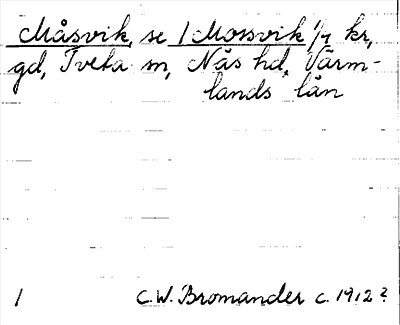 Måsvik, se / Mossvik 1/4 kr,
gd, Tveta sn, Näs hd, Värm-
lands län
1 C.W. Bromander c. 1912?